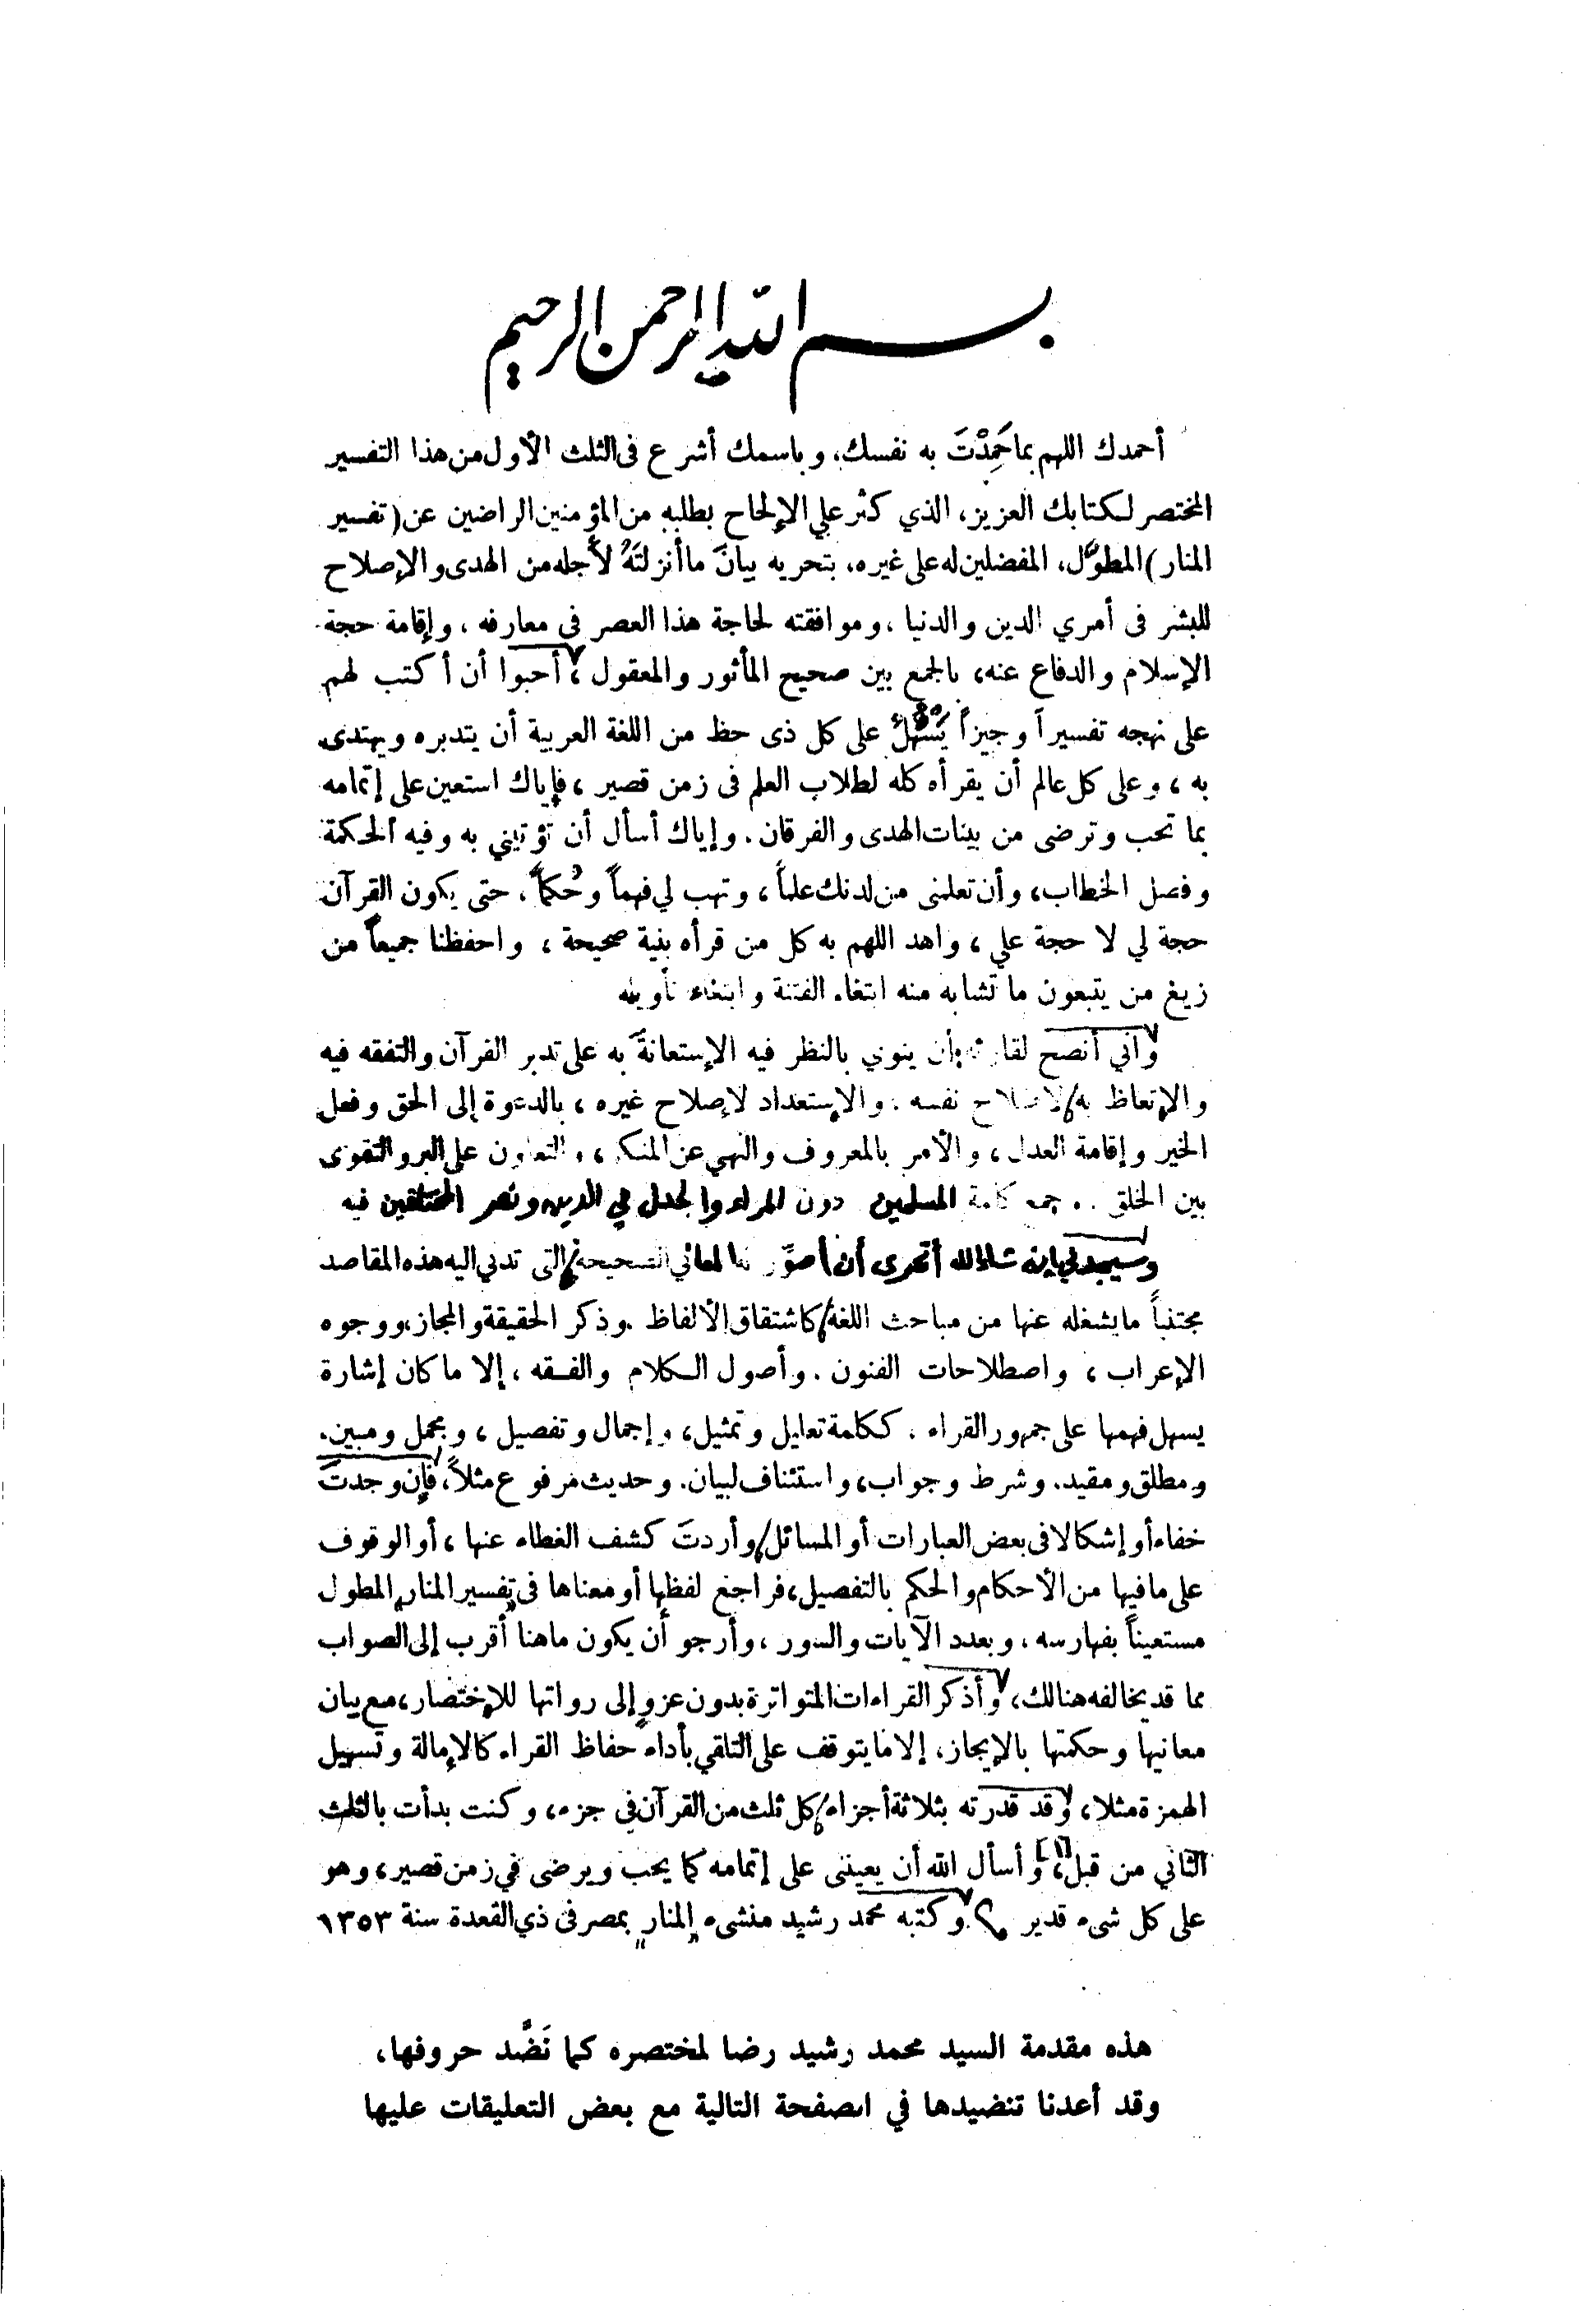 بسم الله الرحمن الرحيم
أحمدك اللهم بما حَمِدْتَ به نفسك، وباسمك أشرع فى الثلث الأول من هذا التفسير
المختصر لكتابك العزيز، الذي كثر علي الإلحاح بطلبه من المؤمنين الراضين عن (تفسير
المنار) المطوَّل، المفضلين له على غيره، بتحريه بيانَ ما أنزلتَهُ لأجله من الهدى والإصلاح
للبشر فى أمري الدين والدنيا، وموافقته لحاجة هذا العصر فى معارفه، وإقامة حجة
الإسلام والدفاع عنه، بالجمع بين صحيح المأثور والمعقول، أحبوا أن أكتب لهم
على نهجه تفسيراً وجيزاً يَسْهُلُ على كل ذى حظ من اللغة العربية أن يتدبره ويهتدى
به، وعلى كل عالم أن يقرأه كله لطلاب العلم فى زمن قصير، فإياك استعين على إتمامه
بما تحب وترضى من بينات الهدى والفرقان. وإياك أسأل أن تؤتيني به وفيه الحكمة
وفصل الخطاب، وأن تعلمنى من لدنك علماً، وتهب لي فهماً وحُكماً، حتى يكون القرآن
حجة لي لا حجة علي، واهد اللهم به كل من قرأه بنية صحيحة، واحفظنا جميعاً من
زيغ من يتبعون ما تشابه منه ابتغاء الفتنة وابتغاء تأويله
وأني أنصح لقارئه بأن ينوي بالنظر فيه الإستعانةَ به على تدبر القرآن والتفقه فيه
والإتعاظ به لإصلاح نفسه، والإستعداد لإصلاح غيره، بالدعوة إلى الحق وفعل
الخير وإقامة العدل، والأمر بالمعروف والنهي عن المنكر، والتعاون على البر والتقوى
بين الخلق، وجمع كلمة المسلمين دون المراء والجدل في الدين ونصر المختلفين فيه
وسيجدني إن شاء الله أتحرى أن أصوِّر له المعاني الصحيحة التى تدني اليه هذه المقاصد
مجتنباً ما يشغله عنها من مباحث اللغة كاشتقاق الألفاظ. وذكر الحقيقة والمجاز، ووجوه
الإعراب، واصطلاحات الفنون. وأصول الكلام والفقه، إلا ما كان إشارة
يسهل فهمها على جمهور القراء، ككلمة تعليل وتمثيل، وإجمال وتفصيل، ومجمل ومبين.
ومطلق ومقيد. وشرط وجواب، واستئناف لبيان. وحديث مرفوع مثلاً، فإن وجدتَ
خفاء أو إشكالا فى بعض العبارات أو المسائل وأردتَ كشف الغطاء عنها، أو الوقوف
على ما فيها من الأحكام والحكم بالتفصيل، فراجع لفظها أو معناها فى تفسير المنار المطول
مستعيناً بفهارسه، وبعدد الآيات والسور، وأرجو أن يكون ما هنا أقرب إلى الصواب
مما قد يخالفه هنالك، وأذكر القراءات المتواترة بدون عزوٍ إلى رواتها للإختصار، مع بيان
معانيها وحكمتها بالإيجاز، إلا ما يتوقف على التلقي بأداء حفاظ القراء كالإمالة وتسهيل
الهمزة مثلا، وقد قدرته بثلاثة أجزاء كل ثلث من القرآن في جزء، وكنت بدأت بالثلث
الثاني من قبل، [١] وأسأل الله أن يعيننى على إتمامه كما يحب ويرضى في زمن قصير، وهو
على كل شىء قدير وكتبه محمد رشيد منشىء "المنار" بمصر فى ذي القعدة سنة ١٣٥٣
هذه مقدمة السيد محمد رشيد رضا لمختصره كما نَضَّد حروفها،
وقد أعدنا تنضيدها في الصفحة التالية مع بعض التعليقات عليها